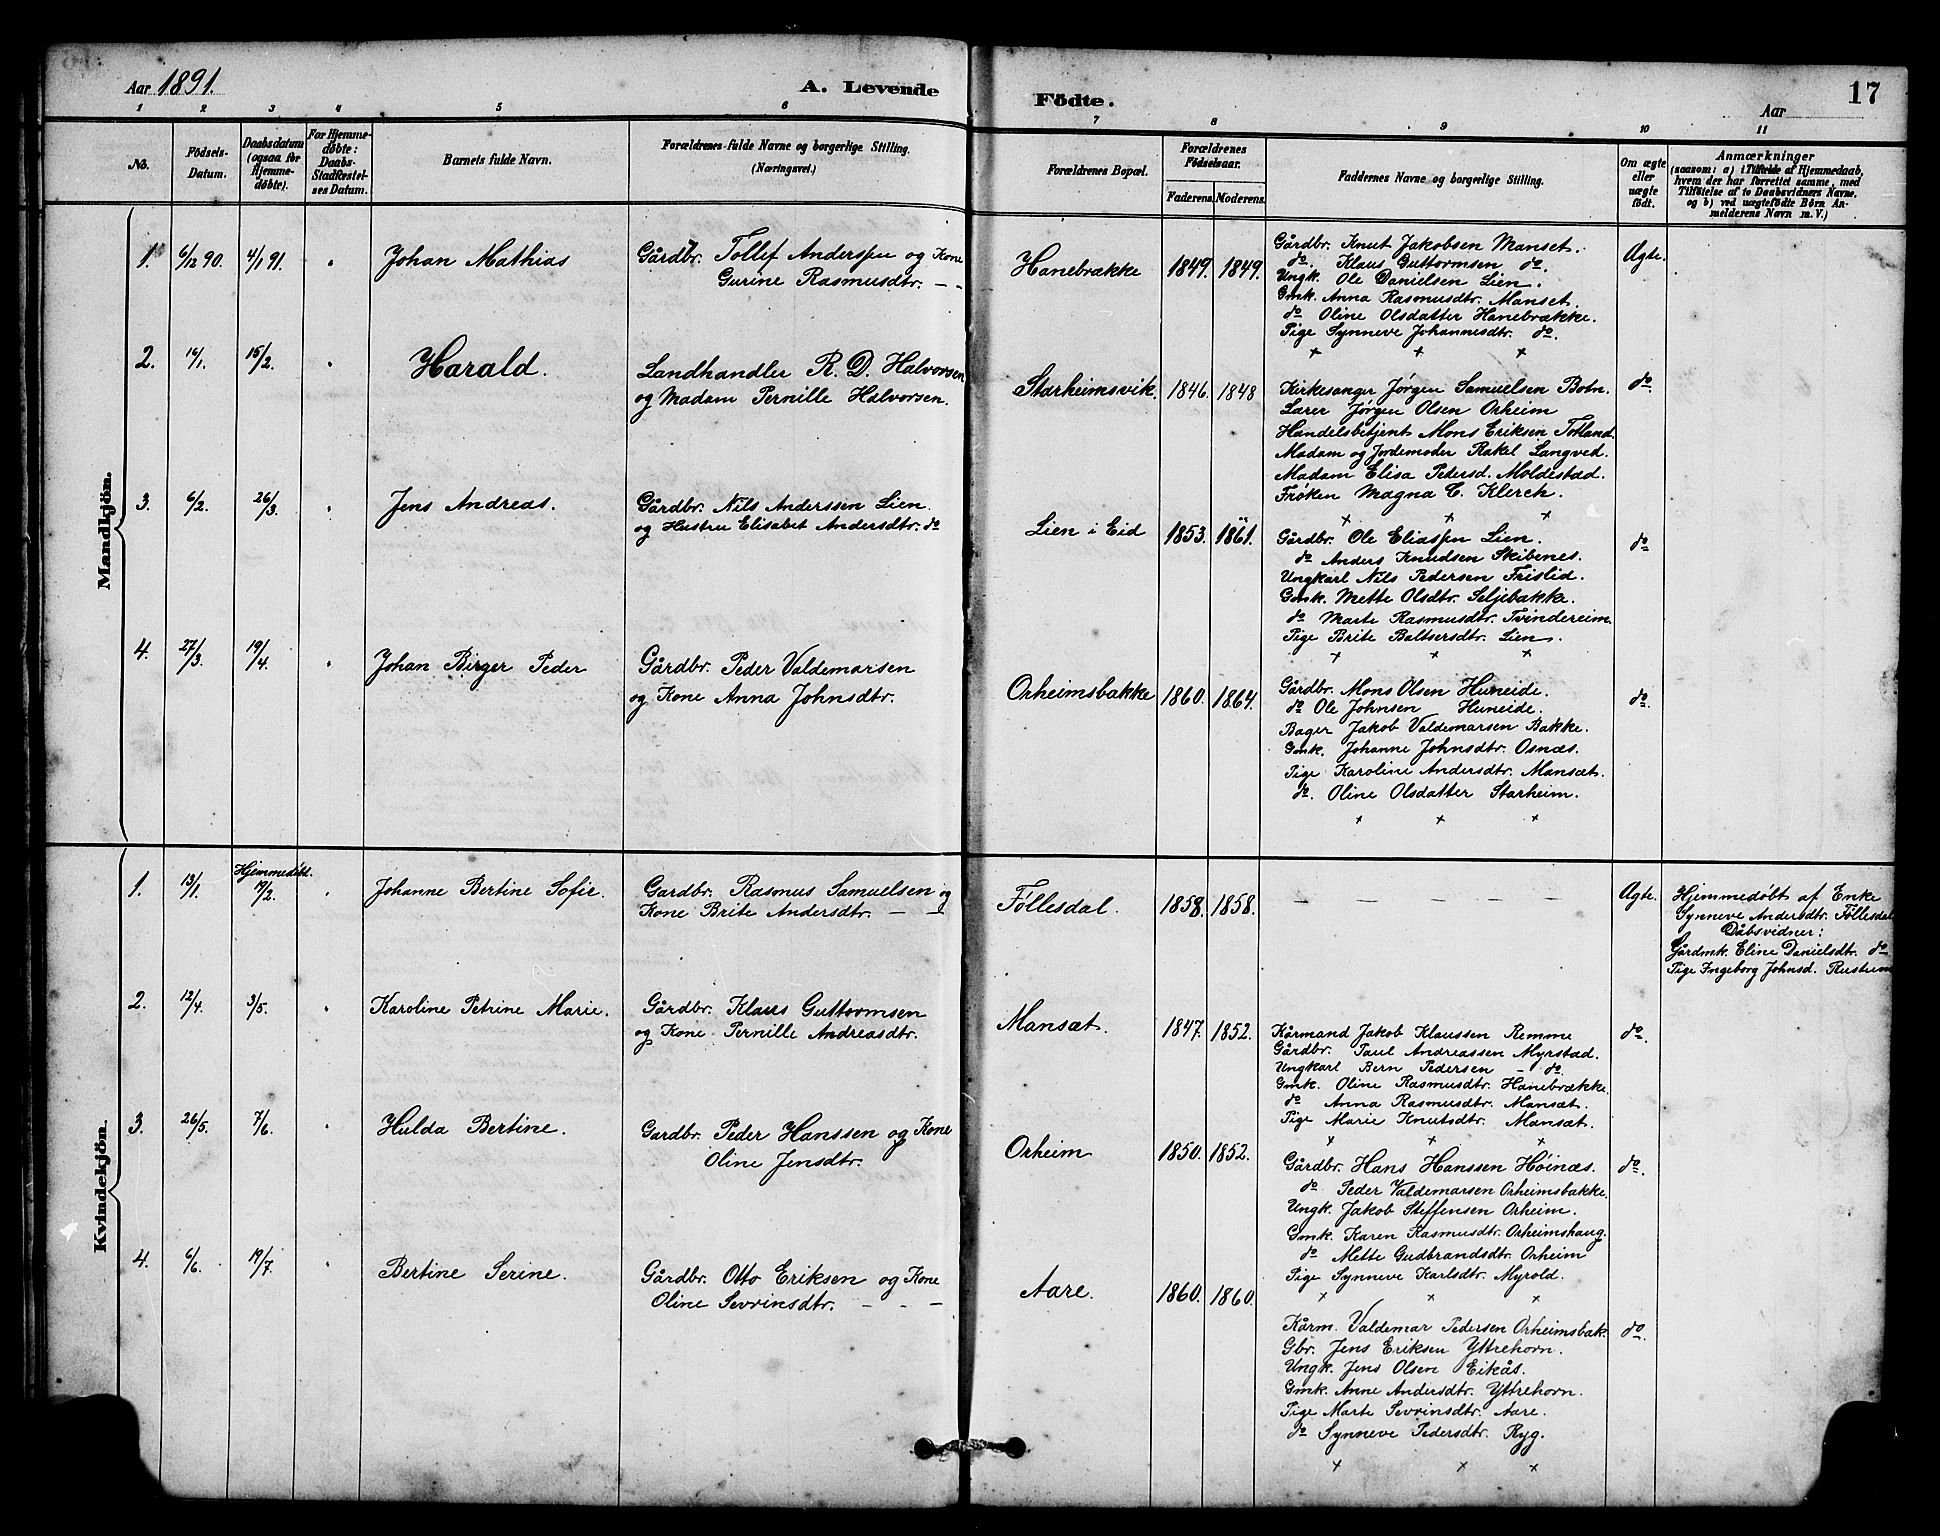 Aar 1891.
A. Levende
Födte.
Aar
17
1 2 3 4 5 6 7 8 9 10 11
No.
Födsels-
Datum.
Daabsdatum
(ogsaa for
Hjemme-
døbte).
For Hjemme-
døbte:
Daabs-
Stadfæstel-
ses Datum.
Barnets fulde Navn.
Forældrenes fulde Navne og borgerlige Stilling.
(Næringsvei.)
Forældrenes Bopæl.
Forældrenes
Födselsaar.
Faderens. Moderens.
Faddernes Navne og borgerlige Stilling.
Om ægte
eller
uægte
født.
Anmærkninger
(saasom: a) i Tilfælde af Hjemmedaab,
hvem der har forrettet samme, med
Tilføielse af to Daabsvidners Navne,
og b) ved uægtefödte Börn An-
melderens Navn m. V.)
Mandkjön.
1. 6/12 90. 4/1 91. Johan Mathias
Gårdbr. Tollef Anderssen og Kone
Gurine Rasmusdtr. - -
Hanebrække 1849. 1849.
Gårdbr. Knut Jakobsen Manset.
do. Klaus Guttormsen do.
Ungk. Ole Danielsen Lien.
Gmk. Anna Rasmusdtr. Manset.
do Oline Olsdatter Hanebrække.
Pige Synneve Johannesdtr. do.
Ægte.
+ + +
2. 16/1. 15/2. Harald.
Landhandler R. D. Halvorsen
og Madam Pernille Halvorsen.
Starheimsvik. 1846. 1848
Kirkesanger Jørgen Samuelsen Botn.
Lærer Jørgen Olsen Orheim
Handelsbetjent Mons Eriksen Totland.
Madam og Jordemoder Rakel Langved.
Madam Elisa Pedersd. Moldestad.
Frøken Magna C. Klerck.
do
+ + +
3. 6/2. 26/3. Jens Andreas.
Gårdbr. Nils Anderssen Lien.
og Hustru Elisabet Andersdtr. do
Lien i Eid 1853. 1861.
Gårdbr. Ole Eliassen Lien.
do Anders Knudsen Skibenes.
Ungkarl Nils Pedersen Frislid.
Gmk. Mette Olsdtr. Seljebakke.
do Marte Rasmusdtr. Tvindereim.
Pige Brite Baltsersdtr. Lien.
do
+ + +
4. 27/3. 19/4. Johan Birger Peder
Gårdbr. Peder Valdemarsen
og Kone Anna Johnsdtr.
Orheimsbakke 1860. 1864.
Gårdbr. Mons Olsen Huneide.
do Ole Johnsen Huneide.
Bager Jakob Valdemarsen Bakke.
Gmk. Johanne Johnsdtr. Osnæs.
Pige Karoline Andersdtr. Mansæt.
do. Oline Olsdatter Starheim.
do.
+ + +
Kvindekjön.
1. 13/1. Hjemmedöbt. 19/2. Johanne Bertine Sofie.
Gardbr. Rasmus Samuelsen og
Kone Brite Andersdtr. - -
Föllesdal. 1858. 1858.
- - - - - -
Ægte.
Hjemmedøbt af Enke
Synneve Andersdtr. Föllesdal
Dåbsvidner:
Gårdmk. Eline Danielsdtr. do
Pige Ingeborg Johnsd.
2. 12/4. 3/5. Karoline Petrine Marie.
Gårdbr. Klaus Guttormsen
og Kone Pernille Andreasdtr.
Mansæt. 1847. 1852.
Kårmand Jakob Klaussen Remme
Gårdbr. Paul Andreassen Myrstad.
Ungkarl Bern Pedersen - do.
Gmk. Oline Rasmusdtr. Hanebrække.
do Anna Rasmusdtr. Mansæt.
Pige Marie Knutsdtr. Mansæt.
do.
+ + +
3. 26/5. 7/6. Hulda Bertine.
Gardbr. Peder Hanssen og Kone
Oline Jensdtr.
Orheim 1850. 1852.
Gårdbr. Hans Hanssen Höinæs.
do Peder Valdemarsen Orheimsbakke.
Ungk. Jakob Steffensen Orheim.
Gmk. Karen Rasmusdtr. Orheimshaug.
do Mette Gudbrandsdtr. Orheim
Pige Synneve Karlsdtr. Myrold.
do.
+ + +
4. 6/6. 19/7. Bertine Serine.
Gårdbr. Otto Eriksen og Kone
Oline Sevrinsdtr. - - -
Aare. 1860. 1860.
Kårm. Valdemar Pedersen Orheimsbak.
Gbr. Jens Eriksen Yttrehorn.
Ungk. Jens Olsen Eikås.
Gmk. Anne Andersdtr. Yttrehorn.
Pige Marte Sevrinsdtr. Aare.
do Synneve Pedersdtr. Ryg.
do.
+ + +